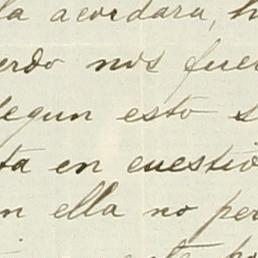 la acordara, h
erdo nos fue
segun esto s
ta en cuestio
n ella no per